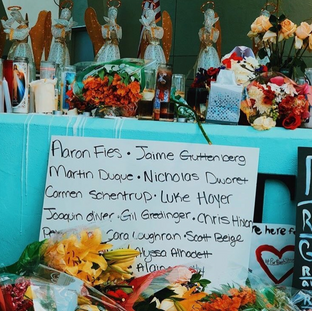 Aaron Fies · Jaime Guttenberg
Martin Duque · Nicholas Dworet
Carmen Schentrup · Luke Hoyer
Joaquin oliver · Gil Gredinger · Chris Hixon
Cara Loughran · Scott Beigel
Alyssa Alhadeff
Alaina
here for